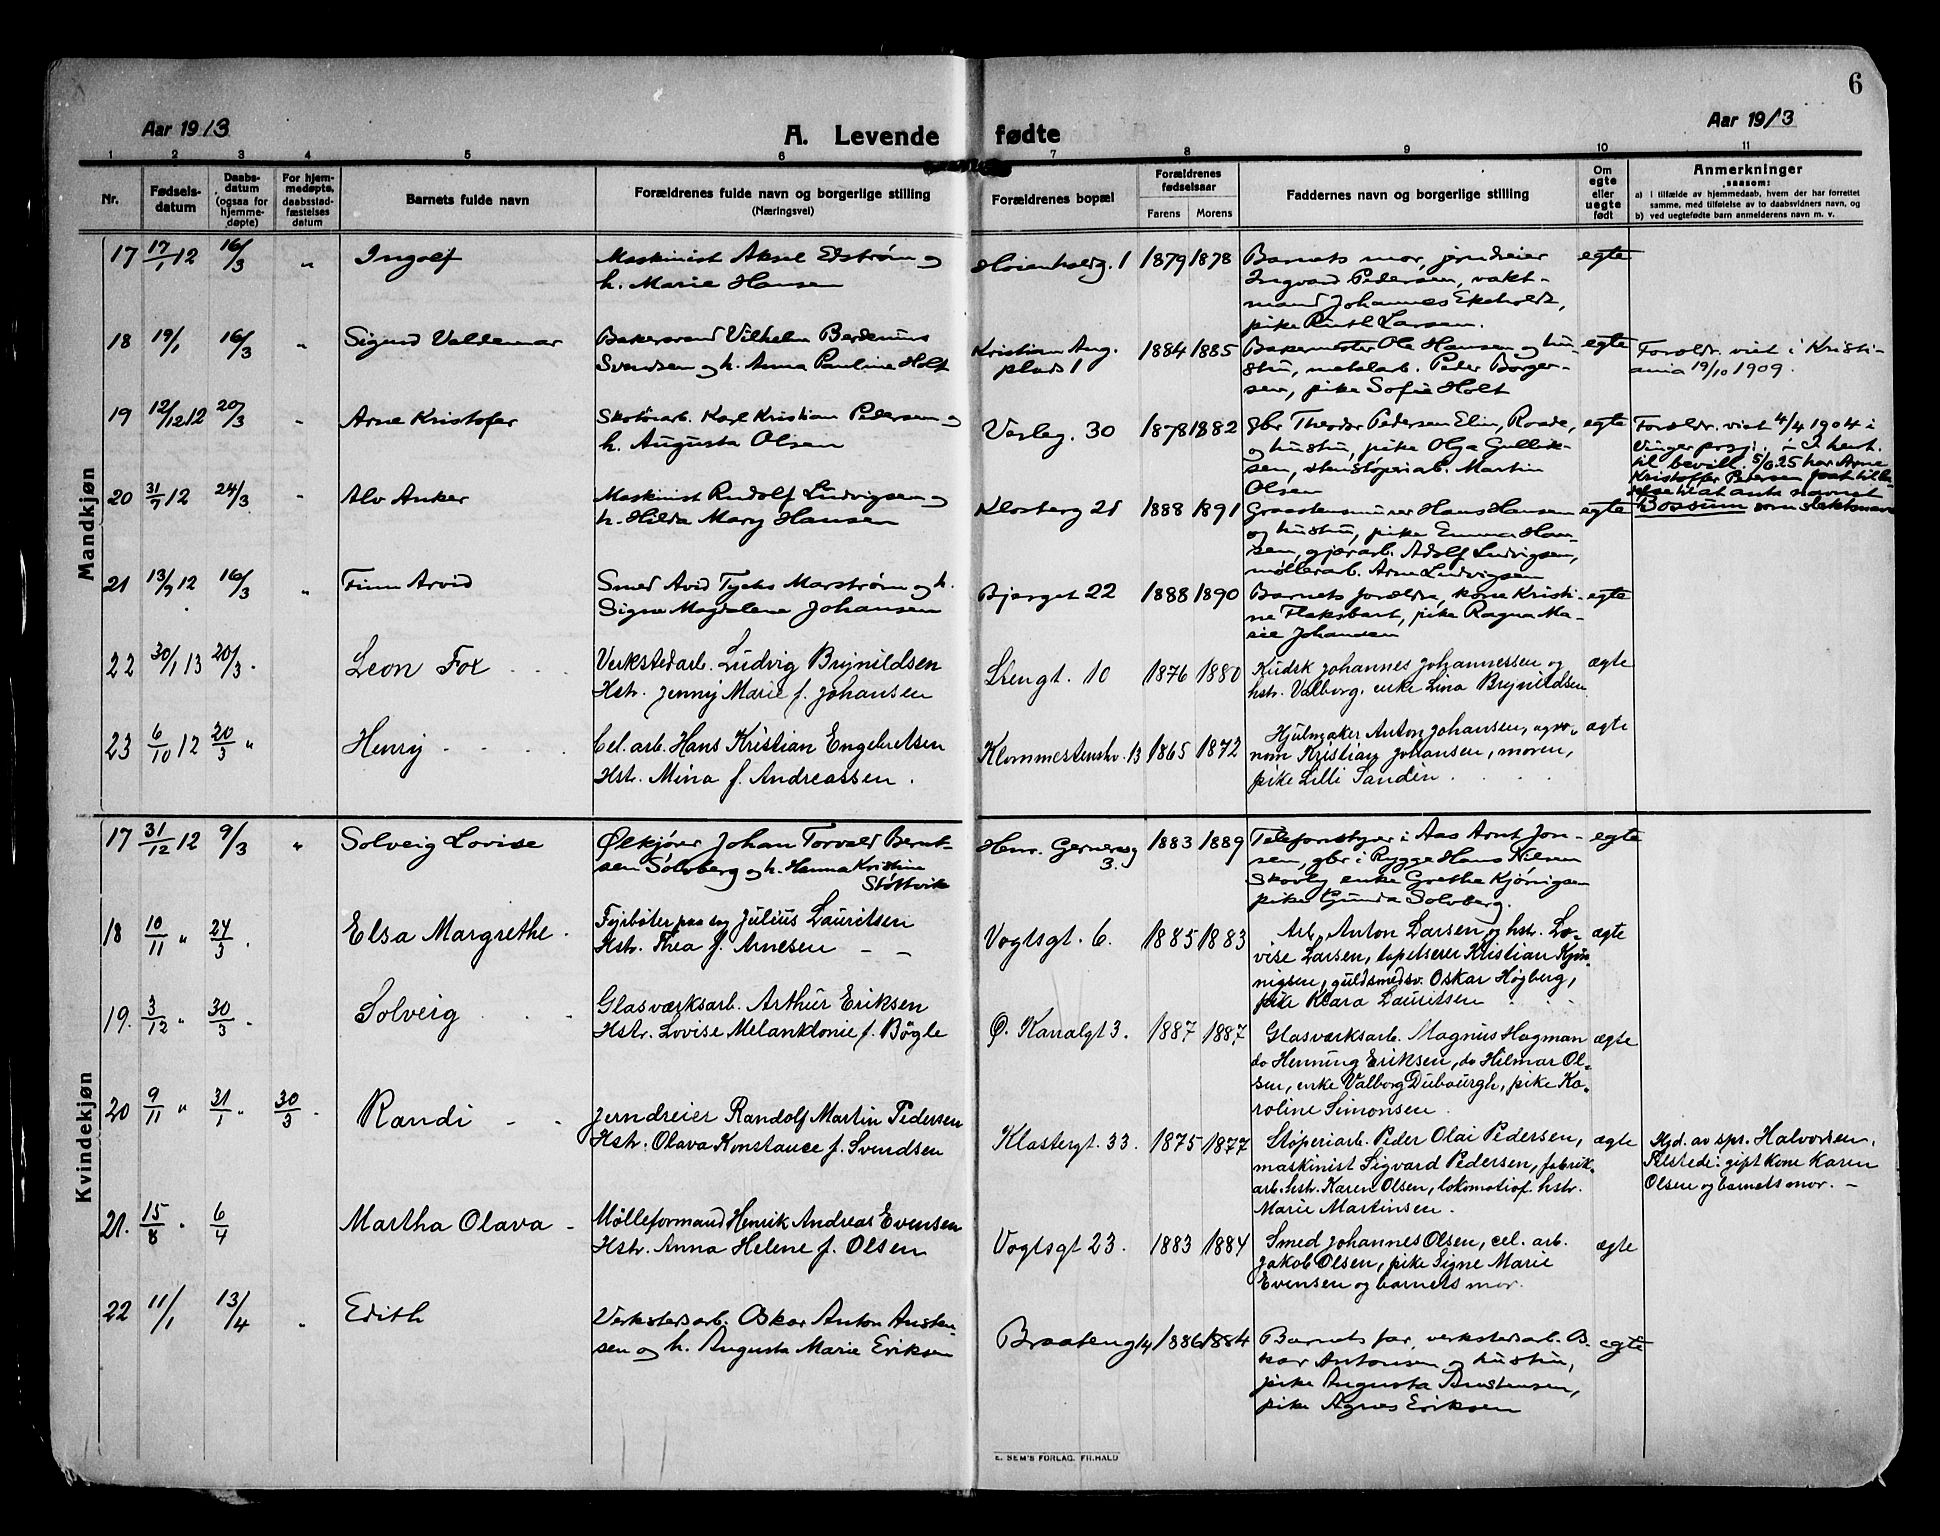 6
Aar 1913
A. Levende fødte
Aar 1913
1 2 3 4 5 6 7 8 9 10 11
Nr.
Fødselsdatum
Daabsdatum (ogsaa for hjemmedøpte)
For hjemmedøpte, daabsstadfæstelses datum
Barnets fulde navn
Forældrenes fulde navn og borgerlige stilling
(Næringsvei)
Forældrenes bopæl
Forældrenes fødselsaar
Farens Morens
Faddernes navn og borgerlige stilling
Om egte eller uegte født
Anmerkninger
saasom:
a) i tilfælde av hjemmedaab, hvem der har forrettet
samme, med tilføielse av to daabsvidners navn, og
b) ved uegtefødte barn anmelderens navn m. v.
Mandkjøn
17 17/1 12 16/3 " Ingolf
Maskinist Aksel Edstrøm og
h. Marie Hansen
1879 1878
Barnets mor, jerndreier
Ingvard Pedersen, vakt-
mand Johannes Ekeholdt,
pike Ruth Larsen.
egte
18 19/1 16/3 " Sigurd Valdemar
Bakersvend Vilhelm
Svendsen og h. Anna Pauline Holt
Kristian Aug.
plads 1
1884 1885
Bakermester Ole Hansen og hu-
stru, metalarb. Peder Borger-
sen, pike Sofie Holt
egte
Forældr. viet i Kristi-
ania 19/10 1909.
19 12/12 12 20/3 " Arne Kristofer
Skotøiarb. Karl Kristian Pedersen og
h. Augusta Olsen
30
1878 1882
gbr Theodor Pedersen Elin, Raade,
og hustru, pike Olga Gullik-
sen, Martin
Olsen
egte
Forældr. viet 4/4 1904 i
Vinger
til bevill. har Arne
Kristoffer Pedersen faat
navnet
Bossum som slektsnavn
20 31/7 12 24/3 " Alv Anker
Maskinist Rudolf Ludvigsen og
h. Hilda Mary Hansen
Klosterg 21
1888 1891
Hans Hansen
og hustru, pike Emma Han-
sen, gjærarb. Adolf Ludvigsen,
møllerarb. Arne Ludvigsen
egte
21 13/9 12 16/3 " Finn Arvid
Smed Avid Marstrøm og h.
Signe Magdalene Johansen
Bjerget 22
1888 1890
Barnets forældre, kone Kristi-
ne pike Ragna Ma-
rie Johansen
egte
22 30/1 13 20/3 . Leon Fox
Verkstedarb. Ludvig Brynildsen
Hstr. Jenny Marie f. Johansen
Strengt. 10
1876 1880
Kudsk Johannes Johannessen og
hstr. Valborg, enke Lina Brynildsen
ægte
23 6/10 12 20/3 " Henry
Cel. arb. Hans Kristian Engebretsen
Hstr. Mina f. Andreassen .
13
1865 1872
Hjulmaker Anton Johansen, agro-
nom Kristian Johansen, moren,
pike Lilli Sandin
ægte
Kvindekjøn
17 31/12 12 9/3 " Solveig Lovise
Ølkjører Johan Torvald Bernt-
sen Solvberg og h. Hanna Kristine
Støttvik
Henr. Gerners g
3.
1883 1889
Telefonstyrer i Aas Arnt Jon-
sen, gbr i Rygge Hans Nilsen
Skovly enke Grethe Kjønigsen
pike Gunda Solvberg.
egte
18 10/11 " 24/3 . Elsa Margrethe
Fyrbøter paa sag Julius Lauritsen
Hstr. Thea f. Arnesen
Vogtsgt. 6.
1885 1883
Arb. Anton Larsen og hstr. Lo-
vise Larsen, tapetserer Kristian Kjøn-
nigsen, guldsmedsv. Oskar Høgberg,
pike Klara Lauritsen
ægte
19. 3/12 " 30/3 . Solveig
Glasværksarb. Arthur Eriksen
Hstr. Lovise Melanktonie f. Bøgle
Ø. Kanalgt 3.
1887 1887
Glasværksarb. Magnus Hagman
do Henning Eriksen, do Hilmar Ol-
sen, enke Valborg Dubourgh, pike Ka-
roline Simonsen.
ægte
20 9/11 " 31/1 " 30/3 . Randi
Jerndreier Randolf Martin Pedersen
Hstr. Olava Konstance f. Svendsen
Klostergt. 33.
1875 1877
Støperiarb. Peder Olai Pedersen,
maskinist Sigvard Pedersen, fabrik-
arb. hstr. Karen Olsen, lokomotivf. hstr.
Marie Martinsen.
ægte
Hjd. av spr. Halvorsen.
Tilstede: gift kone Karen
Olsen og barnets mor. —
21. 15/8 " 6/4 Martha Olava
Mølleformand Henrik Andreas Evensen
Hstr. Anna Helene f. Olsen
Vogtsgt 23.
1883 1884
Smed Johannes Olsen, cel. arb.
Jakob Olsen, pike Signe Marie
Evensen og barnets mor.
ægte
22 11/1 13/4 " Edith
Verkstedsarb. Oskar Anton Austen-
sen og h. Augusta Marie Eriksen
Braateng 14
1886 1884
Barnets far, verkstedsarb. Os-
kar Antonsen og hustru,
pike Augusta Austensen,
pike Agnes Eriksen
egte
E. SEM'S FORLAG, FR.HALD